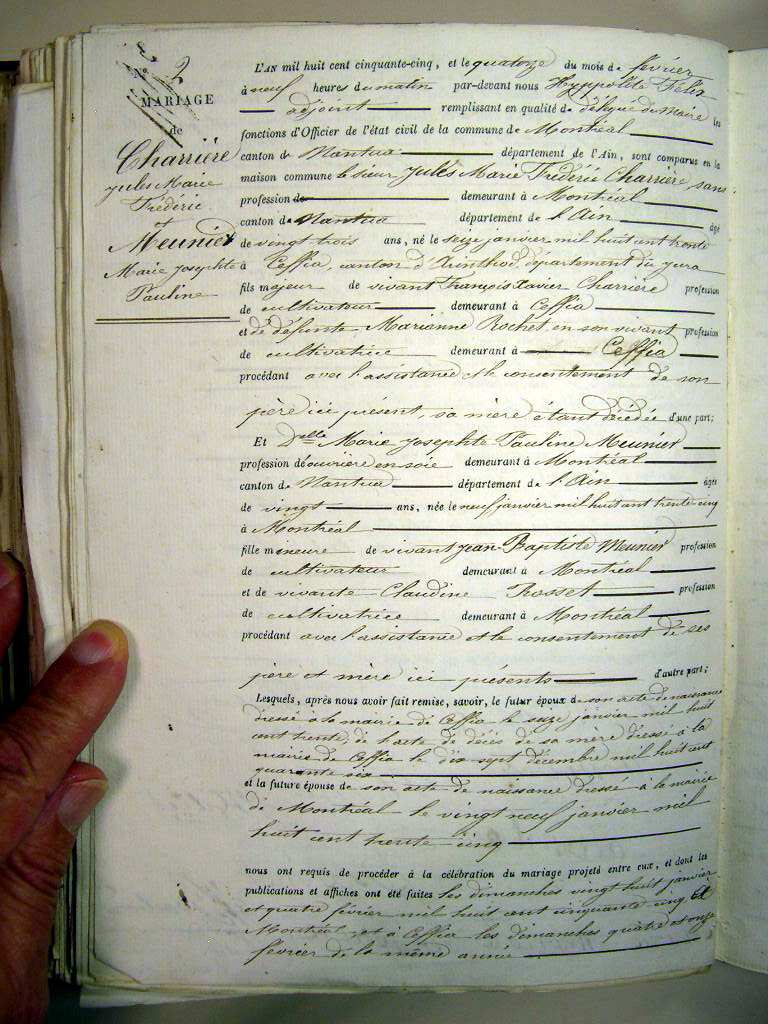 N° 2
MARIAGE
de
Charrière
Jules Marie
Frédéric
et
Meunier
Marie Josephte
Pauline
L'AN mil huit cent cinquante-cinq, et le quatorze du mois de février
à neuf heures du matin par-devant nous Hyppolite Felix
adjoint remplissant en qualité de délégué du Maire les
fonctions d'Officier de l'état civil de la commune de Montréal
canton de Nantua département de l'Ain, sont comparus en la
maison commune le sieur Jules Marie Frédéric Charrière sans
profession de demeurant à Montréal
canton de Nantua département de l'Ain âgé
de vingt trois ans, né le seize janvier mil huit cent trente
à Ceffia, canton d'Arinthod, département du jura
fils majeur de vivant François Xavier Charrière profession
de cultivateur demeurant à Ceffia
et de défunte Marianne Rochet en son vivant profession
de cultivatrice demeurant à Ceffia
procédant avec l'assistance et le consentement de son
père ici présent, sa mère étant décédée d'une part;
Et Delle Marie Josephte Pauline Meunier
profession de ouvrière en soie demeurant à Montréal
canton de Nantua département de l'Ain âgée
de vingt ans, née le neuf janvier mil huit cent trente cinq
à Montréal
fille mineure de vivant Jean-Baptiste Meunier profession
de cultivateur demeurant à Montréal
et de vivante Claudine Rosset profession
de cultivatrice demeurant à Montréal
procédant avec l'assistance et le consentement de ses
père et mère ici présents d'autre part;
Lesquels, après nous avoir fait remise, savoir, le futur époux de son acte de naissance
dressé à la mairie de Ceffia le seize janvier mil huit
cent trente, de l'acte de décès de sa mère dressé à la
mairie de Ceffia le dix sept décembre mil huit cent
quarante six
et la future épouse de son acte de naissance dressé à la mairie
de Montréal le vingt neuf janvier mil
huit cent trente cinq
nous ont requis de procéder à la célébration du mariage projeté entre eux, et dont les
publications et affiches ont été faites les dimanches vingt huit janvier
et quatre février mil huit cent cinquante cinq à
Montréal, et à Ceffia les dimanches quatre et onze
février de la même année